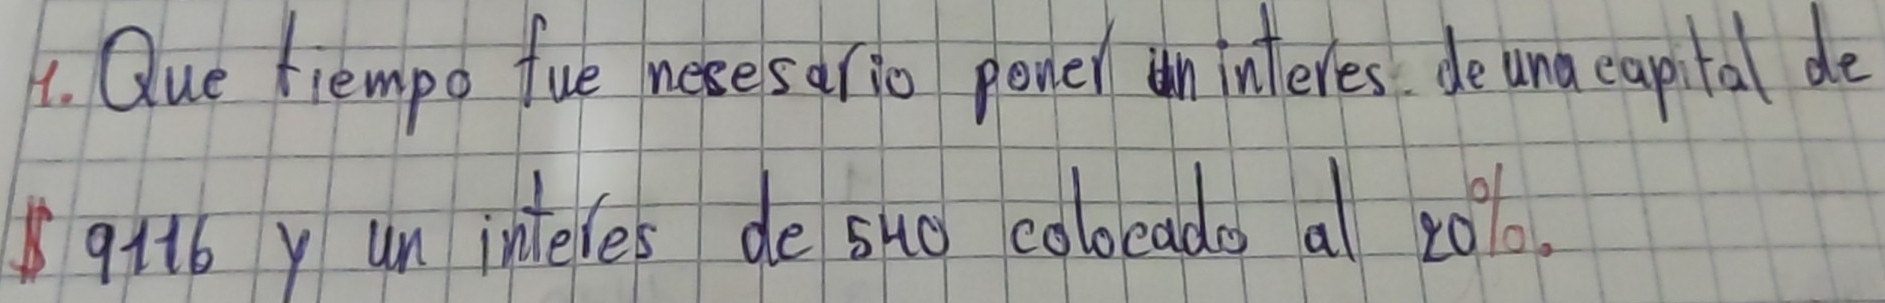 1. Que tiempo fue nesesario poner un interes. de una capital de
$ 9116 y un interes de 540 colocado al 20%.